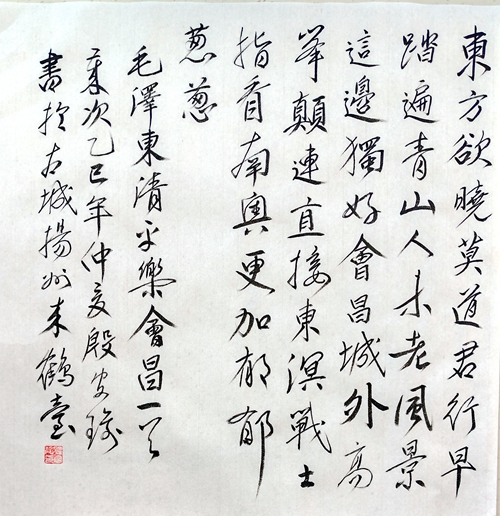 東方欲曉莫道君行早
踏遍青山人未老風景
這邊獨好會昌城外高
峯顛連直接東溟戰士
指看南粵更加郁郁
葱葱
毛澤東清平樂會昌一首
歲次乙巳年仲夏殷
書於古城揚州來鶴臺